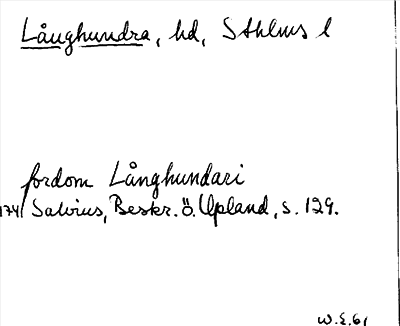 Långhundra, hd, Sthlms l
fordom Långhundari
1741 Salvius, Beskr. ö. Upland, s. 129.
W.E. 61